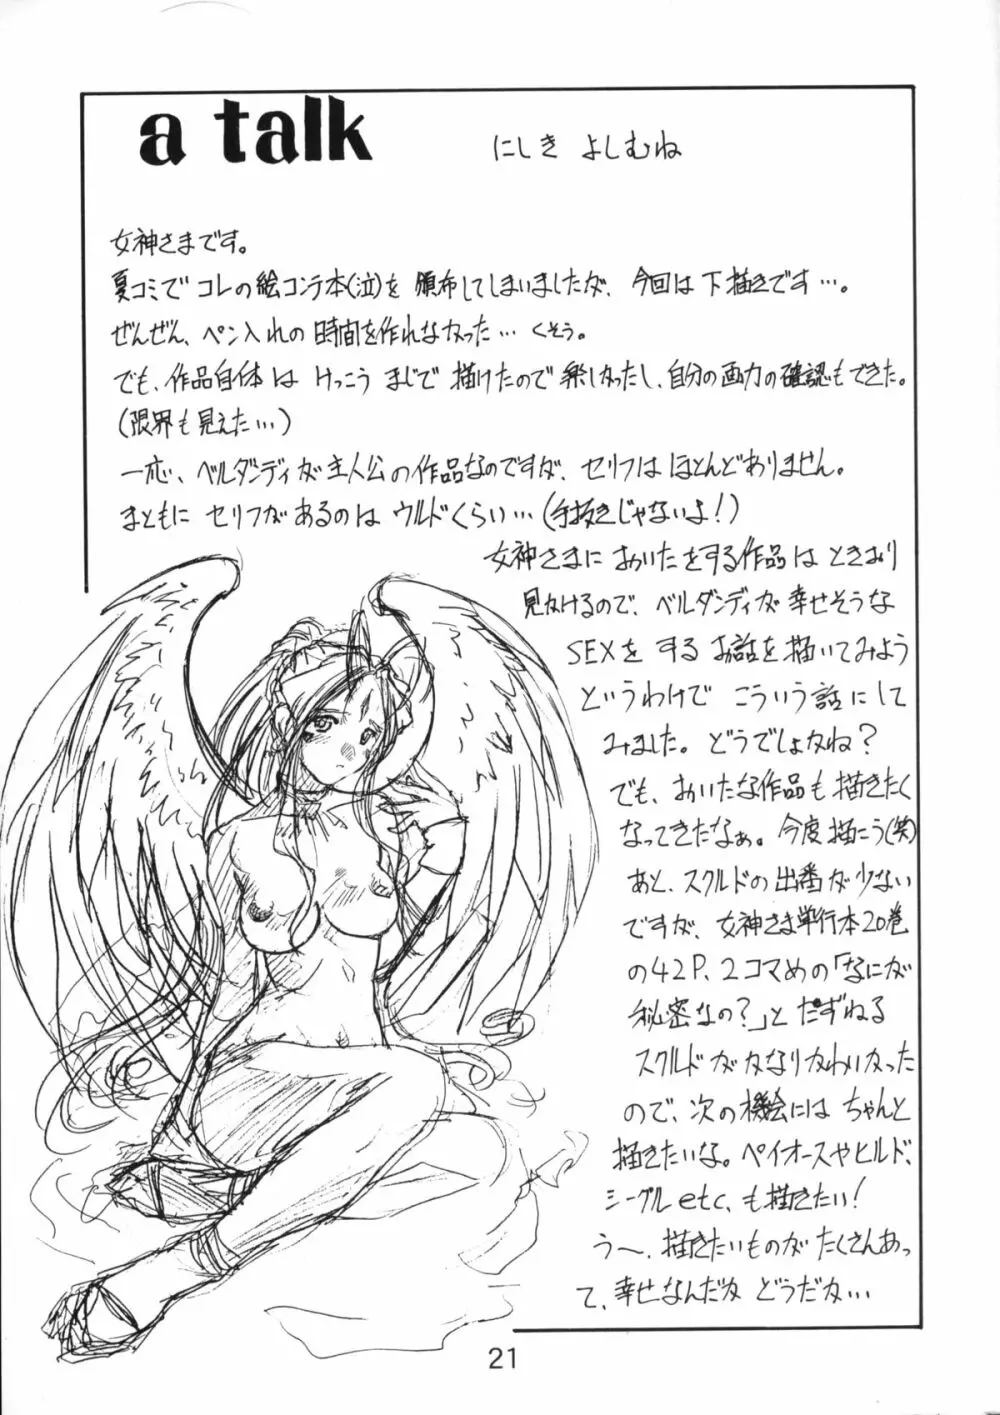 a talk
にしき よしむね
女神さまです。
夏コミで コレの絵コンテ本(泣)を 頒布してしまいましたが、今回は 下描きです…。
ぜんぜん、ペン入れの 時間を作れなかった… くそう。
でも、作品自体は けっこう まじで 描けたので 楽しかったし、自分の画力の確認もできた。
(限界も見えた…)
一応、ベルダンディが主人公の作品なのですが、セリフは ほとんどありません。
まともに セリフがあるのは ウルドくらい…(手抜きじゃないよ!)
女神さまに おいたをする作品は ときおり
見かけるので、ベルダンディが 幸せそうな
SEXを する お話を 描いてみよう
というわけで こういう話にして
みました。どうでしょかね?
でも、おいたな作品も 描きたく
なってきたなぁ。今度 描こう(笑)
あと、スクルドの 出番が 少ない
ですが、女神さま単行本20巻
の42P、2コマめの「なにが
秘密なの?」と たずねる
スクルドが かなりかわいかった
ので、次の機絵には ちゃんと
描きたいな。ペイオースやヒルド、
シーグルetc、も描きたい!
う〜、描きたいものが たくさんあっ
て、幸せなんだか どうだか…
21